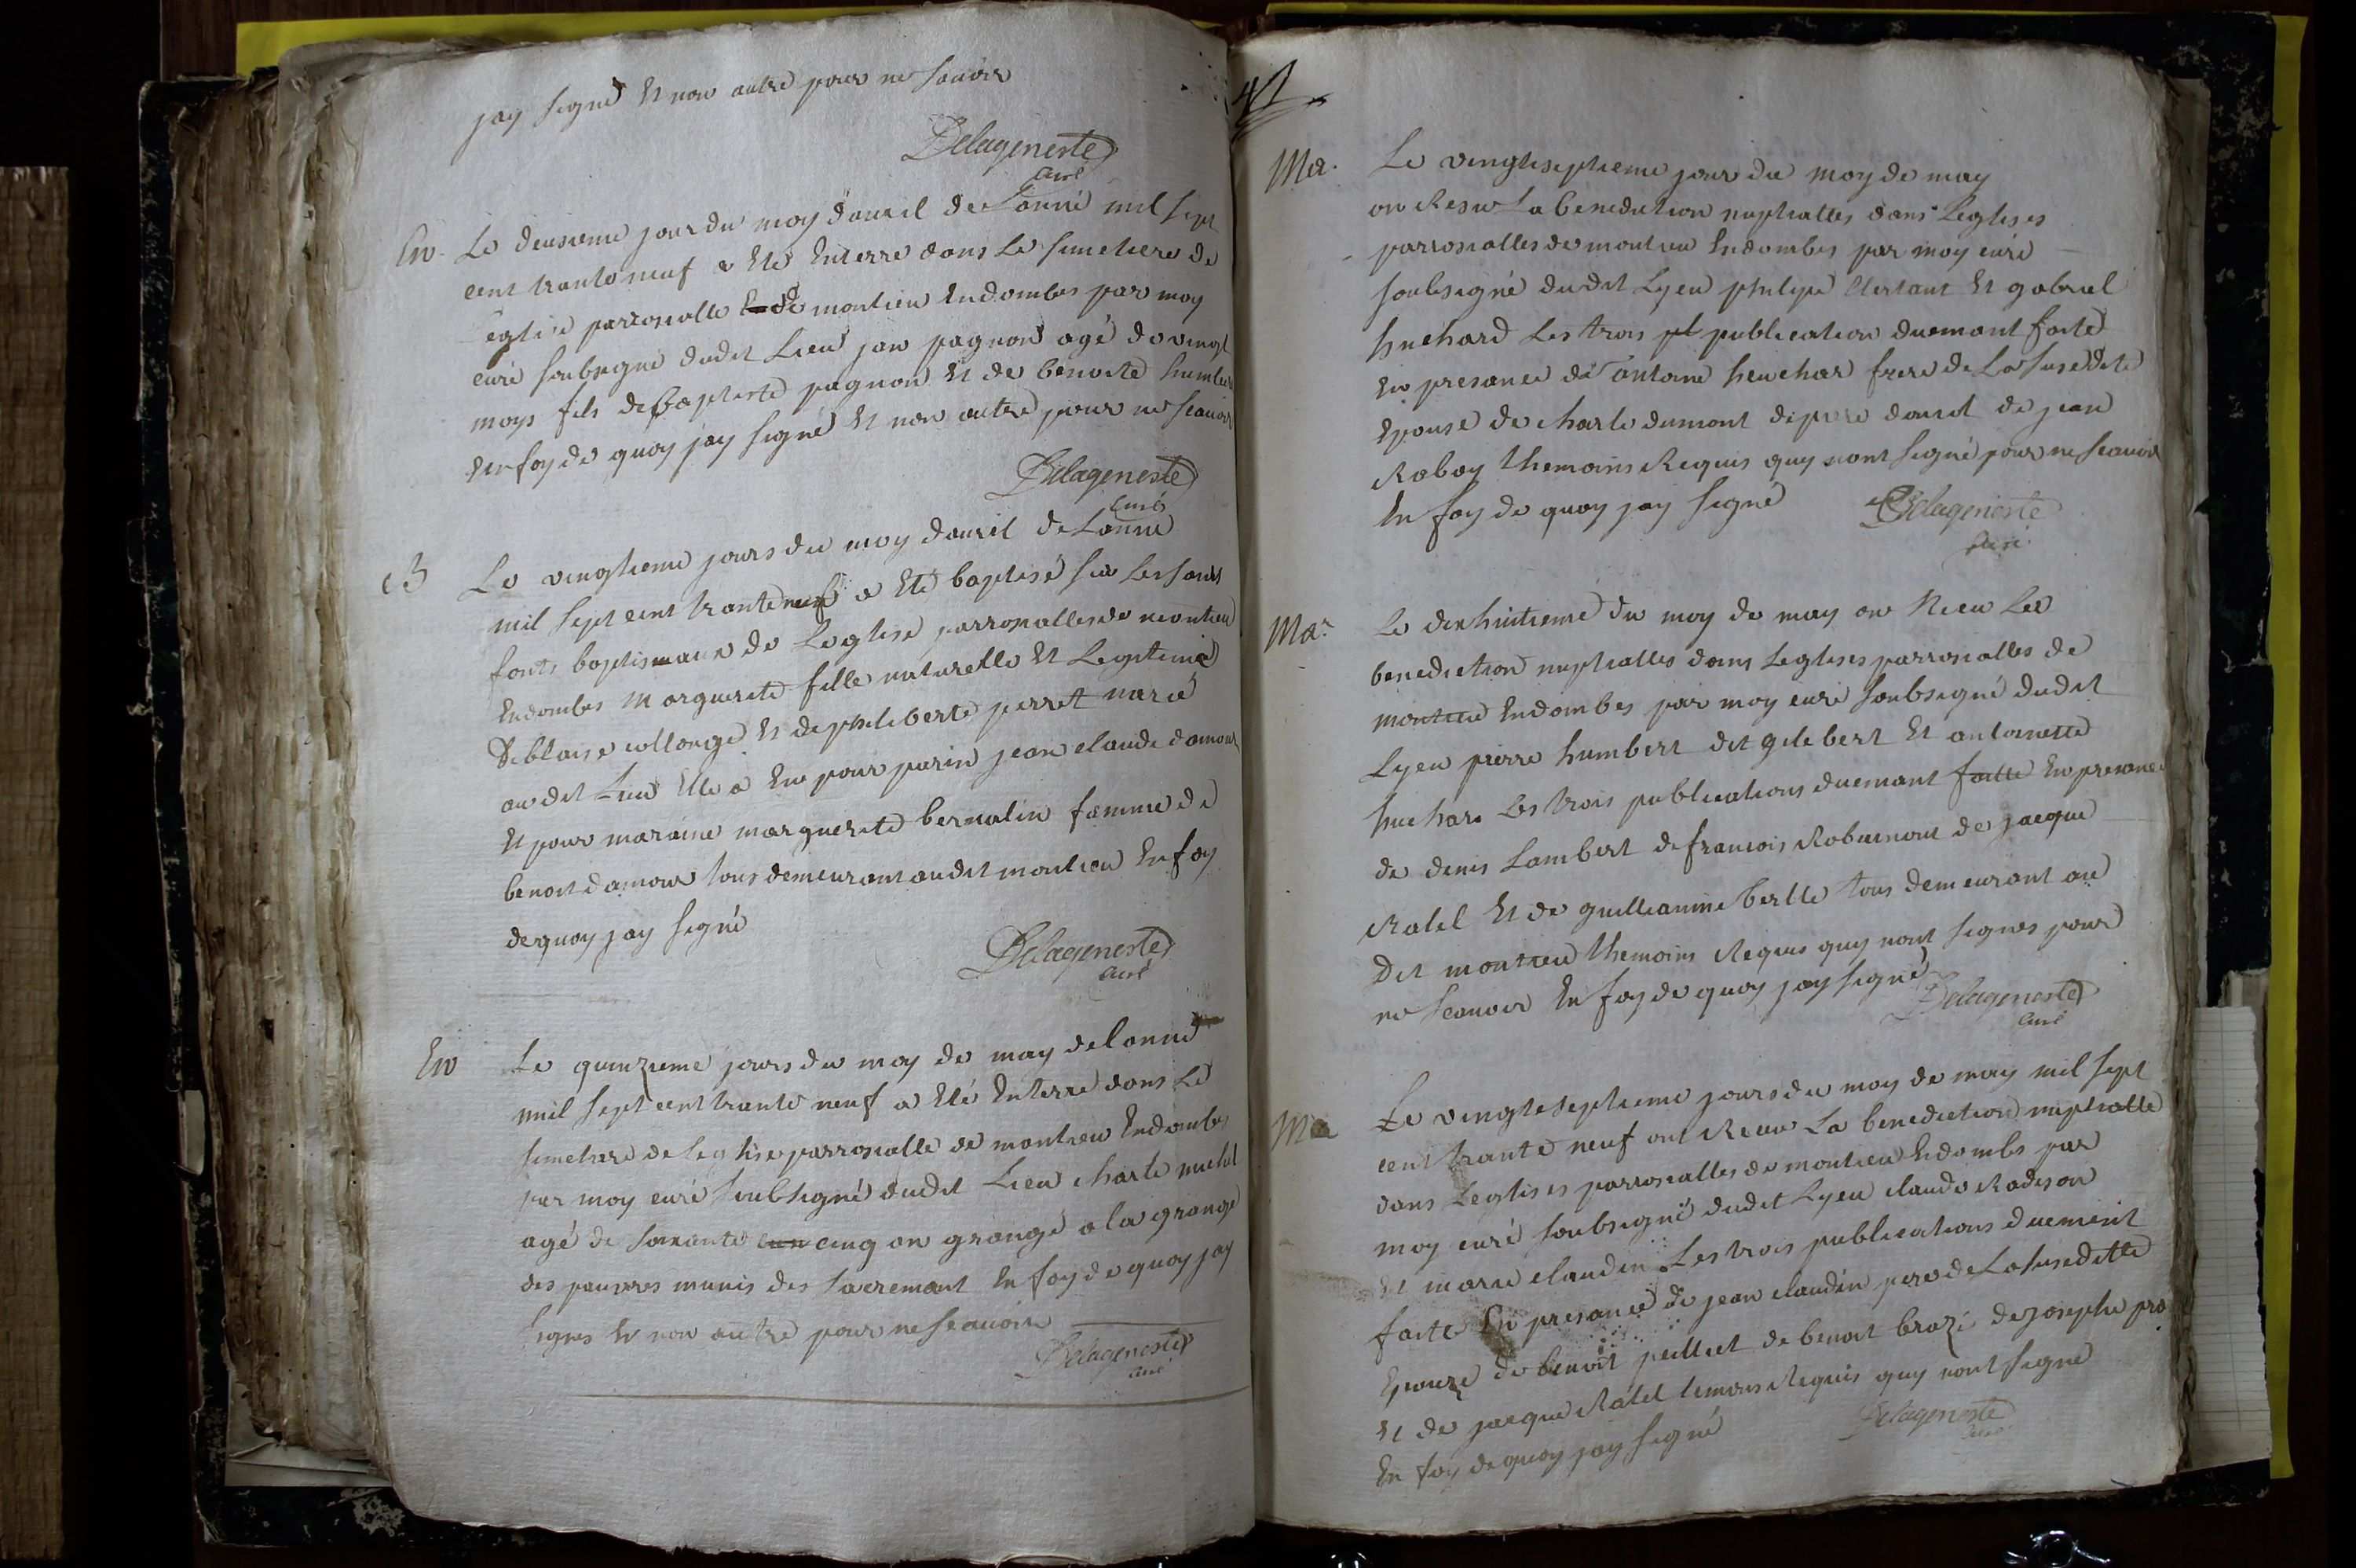 jay signé et non autre pour ne sauoir
Delageneste
curé
En. Le deusieme jour du moy dauril de Lanné mil sept
cent trante neuf a Eté Enterre dans Le simetiere de
eglise parrosialle de montieu Endombes par moy
curé soubsigné dudit Lieu jan pagnon agé de vingt
moys fils de baptiste pagnon Et de benoite humbert
En foy de quoy jay signé Et non autre pour ne scauoir
Delageneste
curé
B Le vingtieme jours du moy dauril de Lanné
mil sept cent trante neuf a Eté baptisé sur Les fonts
fonts baptismaux de Leglise parrosialles de montieu
Endombes Marguerite fille naturelle Et Legitime
de blaise collonge Et de philiberte perret marié
audit Lieu Elle a Eu pour parin jean claude damour
Et pour maraine marguerite bernalin famme de
benoit damour tous demeurant audit montieu En foy
de quoy jay signé
Delageneste
curé
En Le quinzieme jours du moy de may de lanné
mil sept cent trante neuf a Eté Enterre dans Le
simetiere de leglise parrosialle de montieu Endombes
par moy curé soubsigné dudit Lieu charle michel
agé de soixante cinq an grangé a la grange
des pauures munis des sacremant En foy de quoy jay
signes Et non autre pour ne scauoir
Delageneste
curé
Ma. Le vingtiseptieme jour du moy de may
on Resu La benediction nuptialles dans Leglises
parrosialles de montieu Endombes par moy curé
soubsigné dudit Lyeu philipe Et gabriel
huchard Les trois publication duemant faite
En presance de antoine heuchar frere de La susedite
Epouse de charle dumont de dauid de jean
Raboy themoins Requis quy nont signé pour ne scauoir
En foy de quoy jay signé
Delageneste
curé
Mar Le dixhuitieme du moy de may on Receu Les
benediction nuptialles dans Leglises parrosialles de
montieu Endombes par moy curé soubsigné dudit
Lyeu pierre humbert dit gilebert Et antoinette
huchar Les trois publications duemant faitte En presance
de denis Lambert de francois de jacque
Ratel Et de guilleaume berlle tous demeurant au
dit montieu themoins Requis quy nont signes pour
ne scauoir En foy de quoy jay signé
Delageneste
curé
Ma Le vingteseptieme jours du moy de may mil sept
cent trante neuf ont Receu La benediction nuptialle
dans Leglises parrosialles de montieu Endombes par
moy curé soubsigné dudit Lyeu claude Radison
Et marie claudin Les trois publications duement
faite En presance de jean claudin pere de La susedette
Epouze de benoit peillet de benoit brazi de josephe pro
Et de jacque Ratel temoins Requis quy nont signé
En foy de quoy jay signé
Delageneste
curé